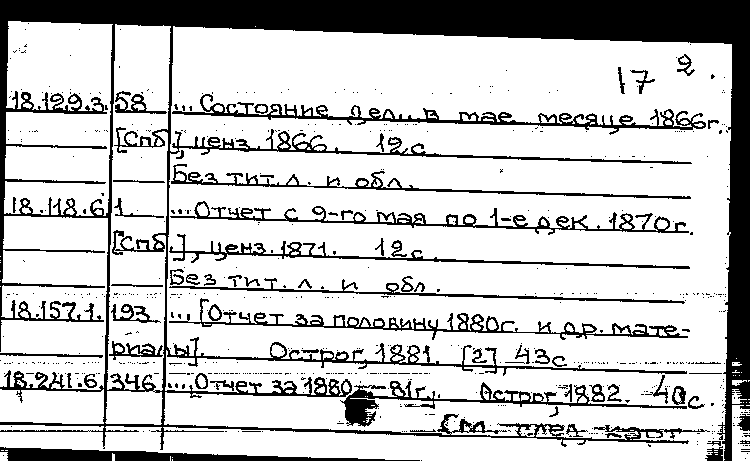 17 2.
18.129.3.58 ...Состояние дел.. в мае месяце 1866г.
[Спб.], ценз. 1866. 12с.
Без тит. л. и обл.
18.118.6.1 ...Отчет с 9-го мая по 1-е дек. 1870г.
[Спб.], ценз. 1871. 12с.
Без тит. л. и обл.
18.157.1.193 ...[Отчет за половину 1880г. и др. мате-
риалы]. Острог, 1881. [2], 43с.
18.241.6.346 ...Отчет за 1880-81г. Острог, 1882. 40с.
См. след. карт